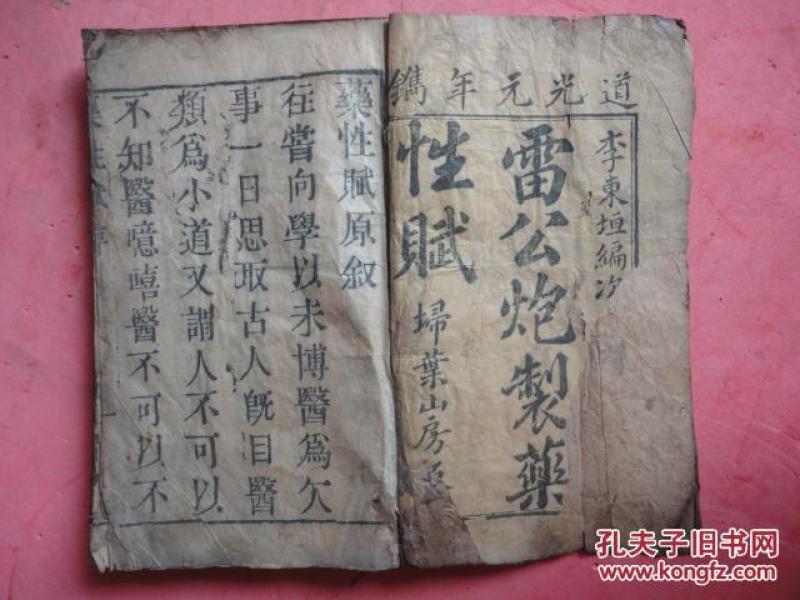 道光元年鐫
李東垣編次
雷公炮製藥
性賦
埽葉山房
藥性賦原叙
往嘗向學以未博醫爲欠
事一日思取古人既目醫
類爲小道又謂人不可以
不知醫噫嘻醫不可以不
孔夫子旧书网
www.kongfz.com